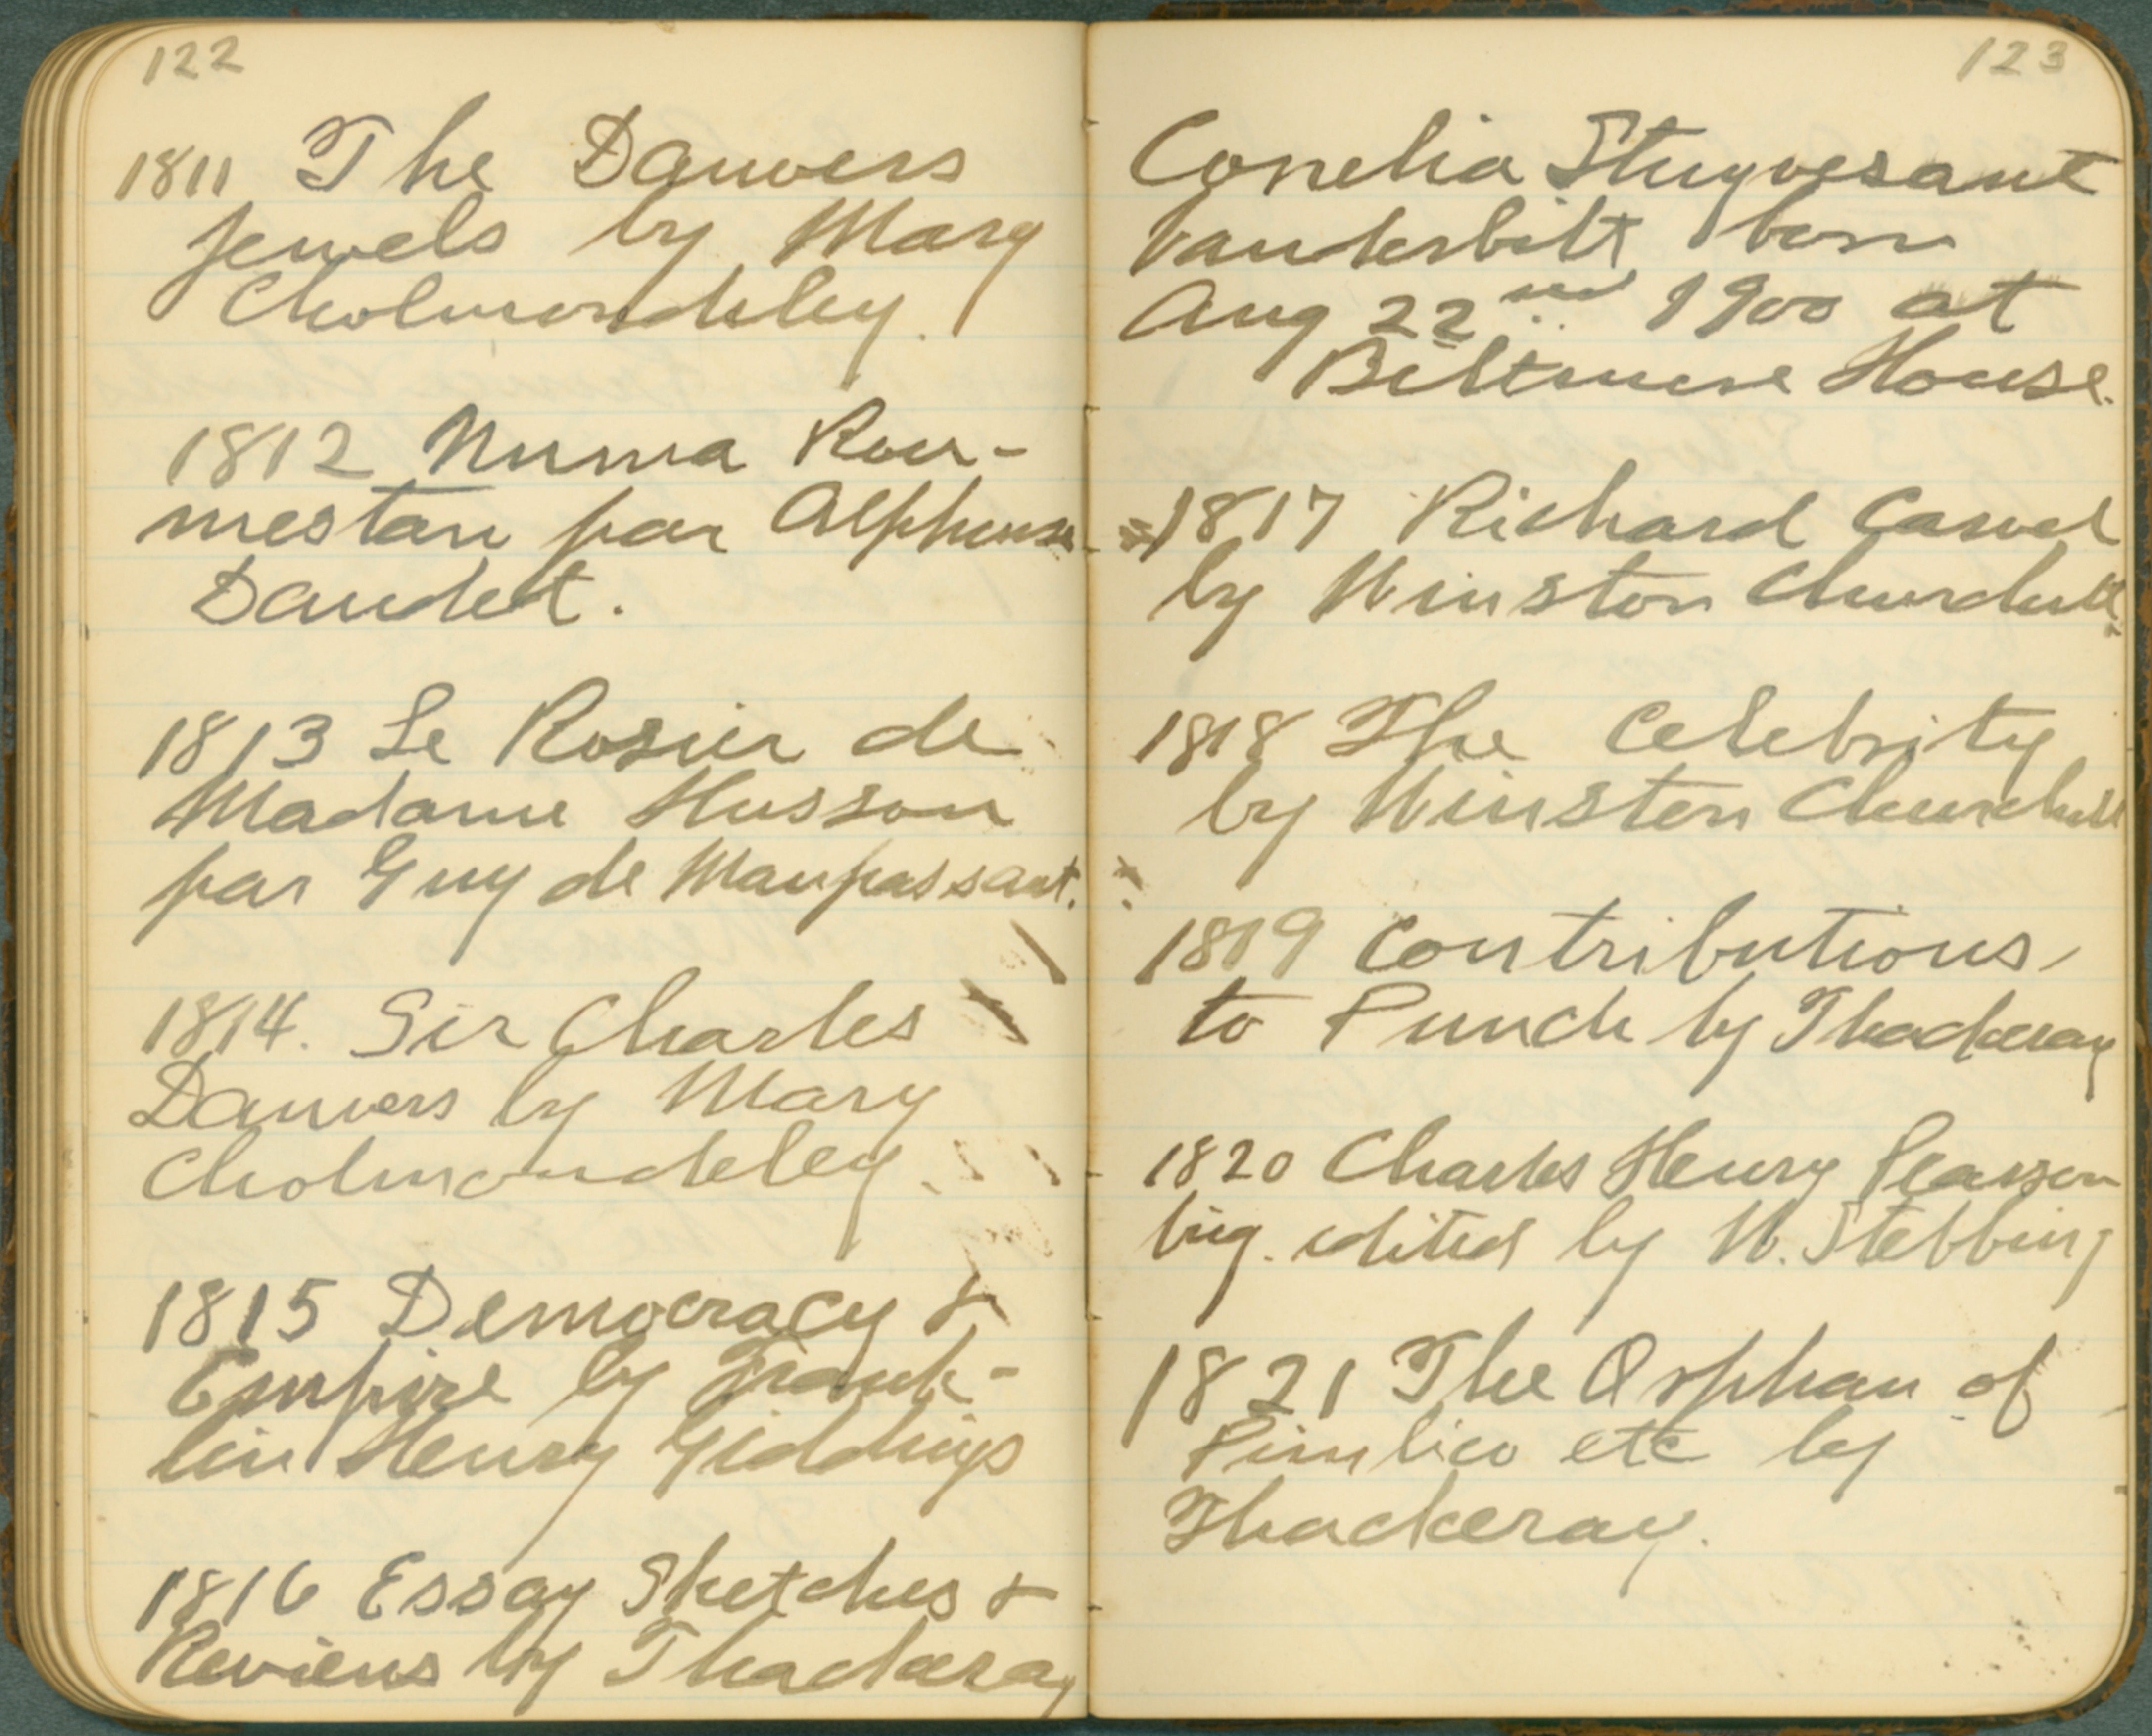 122
1811 The Danvers
Jewels by Mary
Cholmondeley.
1812 Numa Rou-
mestan par Alphonse
Daudet.
1813 Le Rosier de
Madame Husson
par Guy de Maupassant.
1814. Sir Charles
Danvers by Mary
Cholmondeley.
1815 Democracy &
Empire by Frank-
lin Henry Giddings
1816 Essay Sketches &
Reviews by Thackeray
123
Conelia Stuyvesant
Vanderbilt born
Aug 22nd 1900 at
Biltmore House.
1817 Richard Carvel
by Winston Churchill.
1818 The Celebrity
by Winston Churchill
1819 Contributions
to Punch by Thackeray
1820 Charles Henry Pearson
biog. edited by W. Stebbing
1821 The Orphan of
Pimlico etc by
Thackeray.